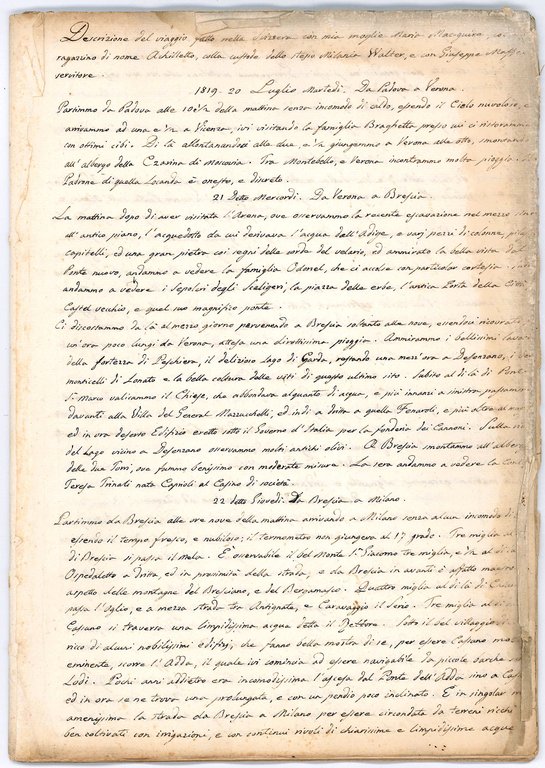 Descrizione del viaggio fatto nella Svizzera con mia moglie Maria
ragazzino di nome Achilletto, colla custode dello stesso Milania Walter, e con Giuseppe
servitore.
1819. 20 Luglio Martedì. Da Padova a Verona.
Partimmo da Padova alle 10 e ½ della mattina senza incomodo di caldo, essendo il Cielo nuvoloso, e
arrivammo ad una e ½ a Vicenza, ivi visitando la famiglia Braghetta, presso cui ci ristorammo
con ottimi cibi. Di là allontanandosi alle due, e ½ giungemmo a Verona alle otto, smontando
all'albergo della Czarina di Moscovia. Tra Montebello, e Verona incontrammo molta pioggia.
Padrone di quella Locanda è onesto, e discreto.
21 Detto Mercordì. Da Verona a Brescia.
La mattina dopo di aver visitata l'Arena, ove osservammo la recente escavazione nel mezzo
all'antico piano, l'acquedotto da cui derivava l'acqua dall'Adige, e varj pezzi di colonne,
capitelli, ed una gran pietra coi segni delle corde del velario, ed ammirato la bella vista da
Ponte nuovo, andammo a vedere la famiglia Odonel, che ci accolse con particolar cortesia
andammo a vedere i Sepolcri degli Scaligeri, la piazza delle erbe, l'antica Porta della Città
Castel vecchio, e quel suo magnifico ponte.
Ci discostammo da là al mezzo giorno pervenendo a Brescia soltanto alle nove, essendosi
un'ora poco lungi da Verona, attesa una dirottissima pioggia. Ammirammo i bellissimi
della fortezza di Peschiera, il delizioso Lago di Garda, restando una mezz'ora a Desenzano, i
monticelli di Lonato e la bella coltura delle viti di questo ultimo sito. Subito al di là di Ponte
S. Marco valicammo il Chiese, che abbondava alquanto di acqua, e più innanzi a sinistra passammo
davanti alla Villa del General Mazzuchelli, ed indi a dritta a quella Fenaroli, e più oltre al
ed in ora deserto Edifizio eretto sotto il Governo d'Italia per la fonderia dei Cannoni. Sulla
del Lago vicino a Desenzano osservammo molti antichi olivi. A Brescia smontammo all'albergo
delle due Torri, ove fummo benissimo con moderata misura. La sera andammo a vedere la
Teresa Trinali nata Cagnoli al Casino di società.
22 detto Giovedì. Da Brescia a Milano.
Partimmo da Brescia alle ore nove della mattina arrivando a Milano senza alcun incomodo di
essendo il tempo fresco, e nubiloso; il termometro non giungeva al 17 grado. Tre miglia al
di Brescia si passa il Mela. E' osservabile il del Monte S. Giacomo tre miglia, e ½ al di là
Ospedaletto a dritta, ed in prossimità della strada, e da Brescia in avanti è affatto
aspetto delle montagne del Bresciano, e del Bergamasco. Quattro miglia al di là di
passa l'Oglio, e a mezza strada tra Antignate, e Caravaggio il Serio. Tre miglia al di
Cassano si traversa una limpidissima acqua detta il Rettore. Sotto il del villaggio
rico di alcuni nobilissimi edifizj, che fanno della mostra di se, per essere Cassano
eminente, scorre l'Adda, il quale ivi comincia ad essere navigabile da picole barche
Lodi. Pochi anni addietro era incomodissima l'ascesa dal Ponte dell'Adda sino a
ed in ora se ne trova una prolungata, e con un pendìo poco inclinato. E in singolar
amenissima la strada da Brescia a Milano per essere circondata da terreni ricchi
ben coltivati con irrigazioni, e con continui rivoli di chiarissime e limpidissime acque